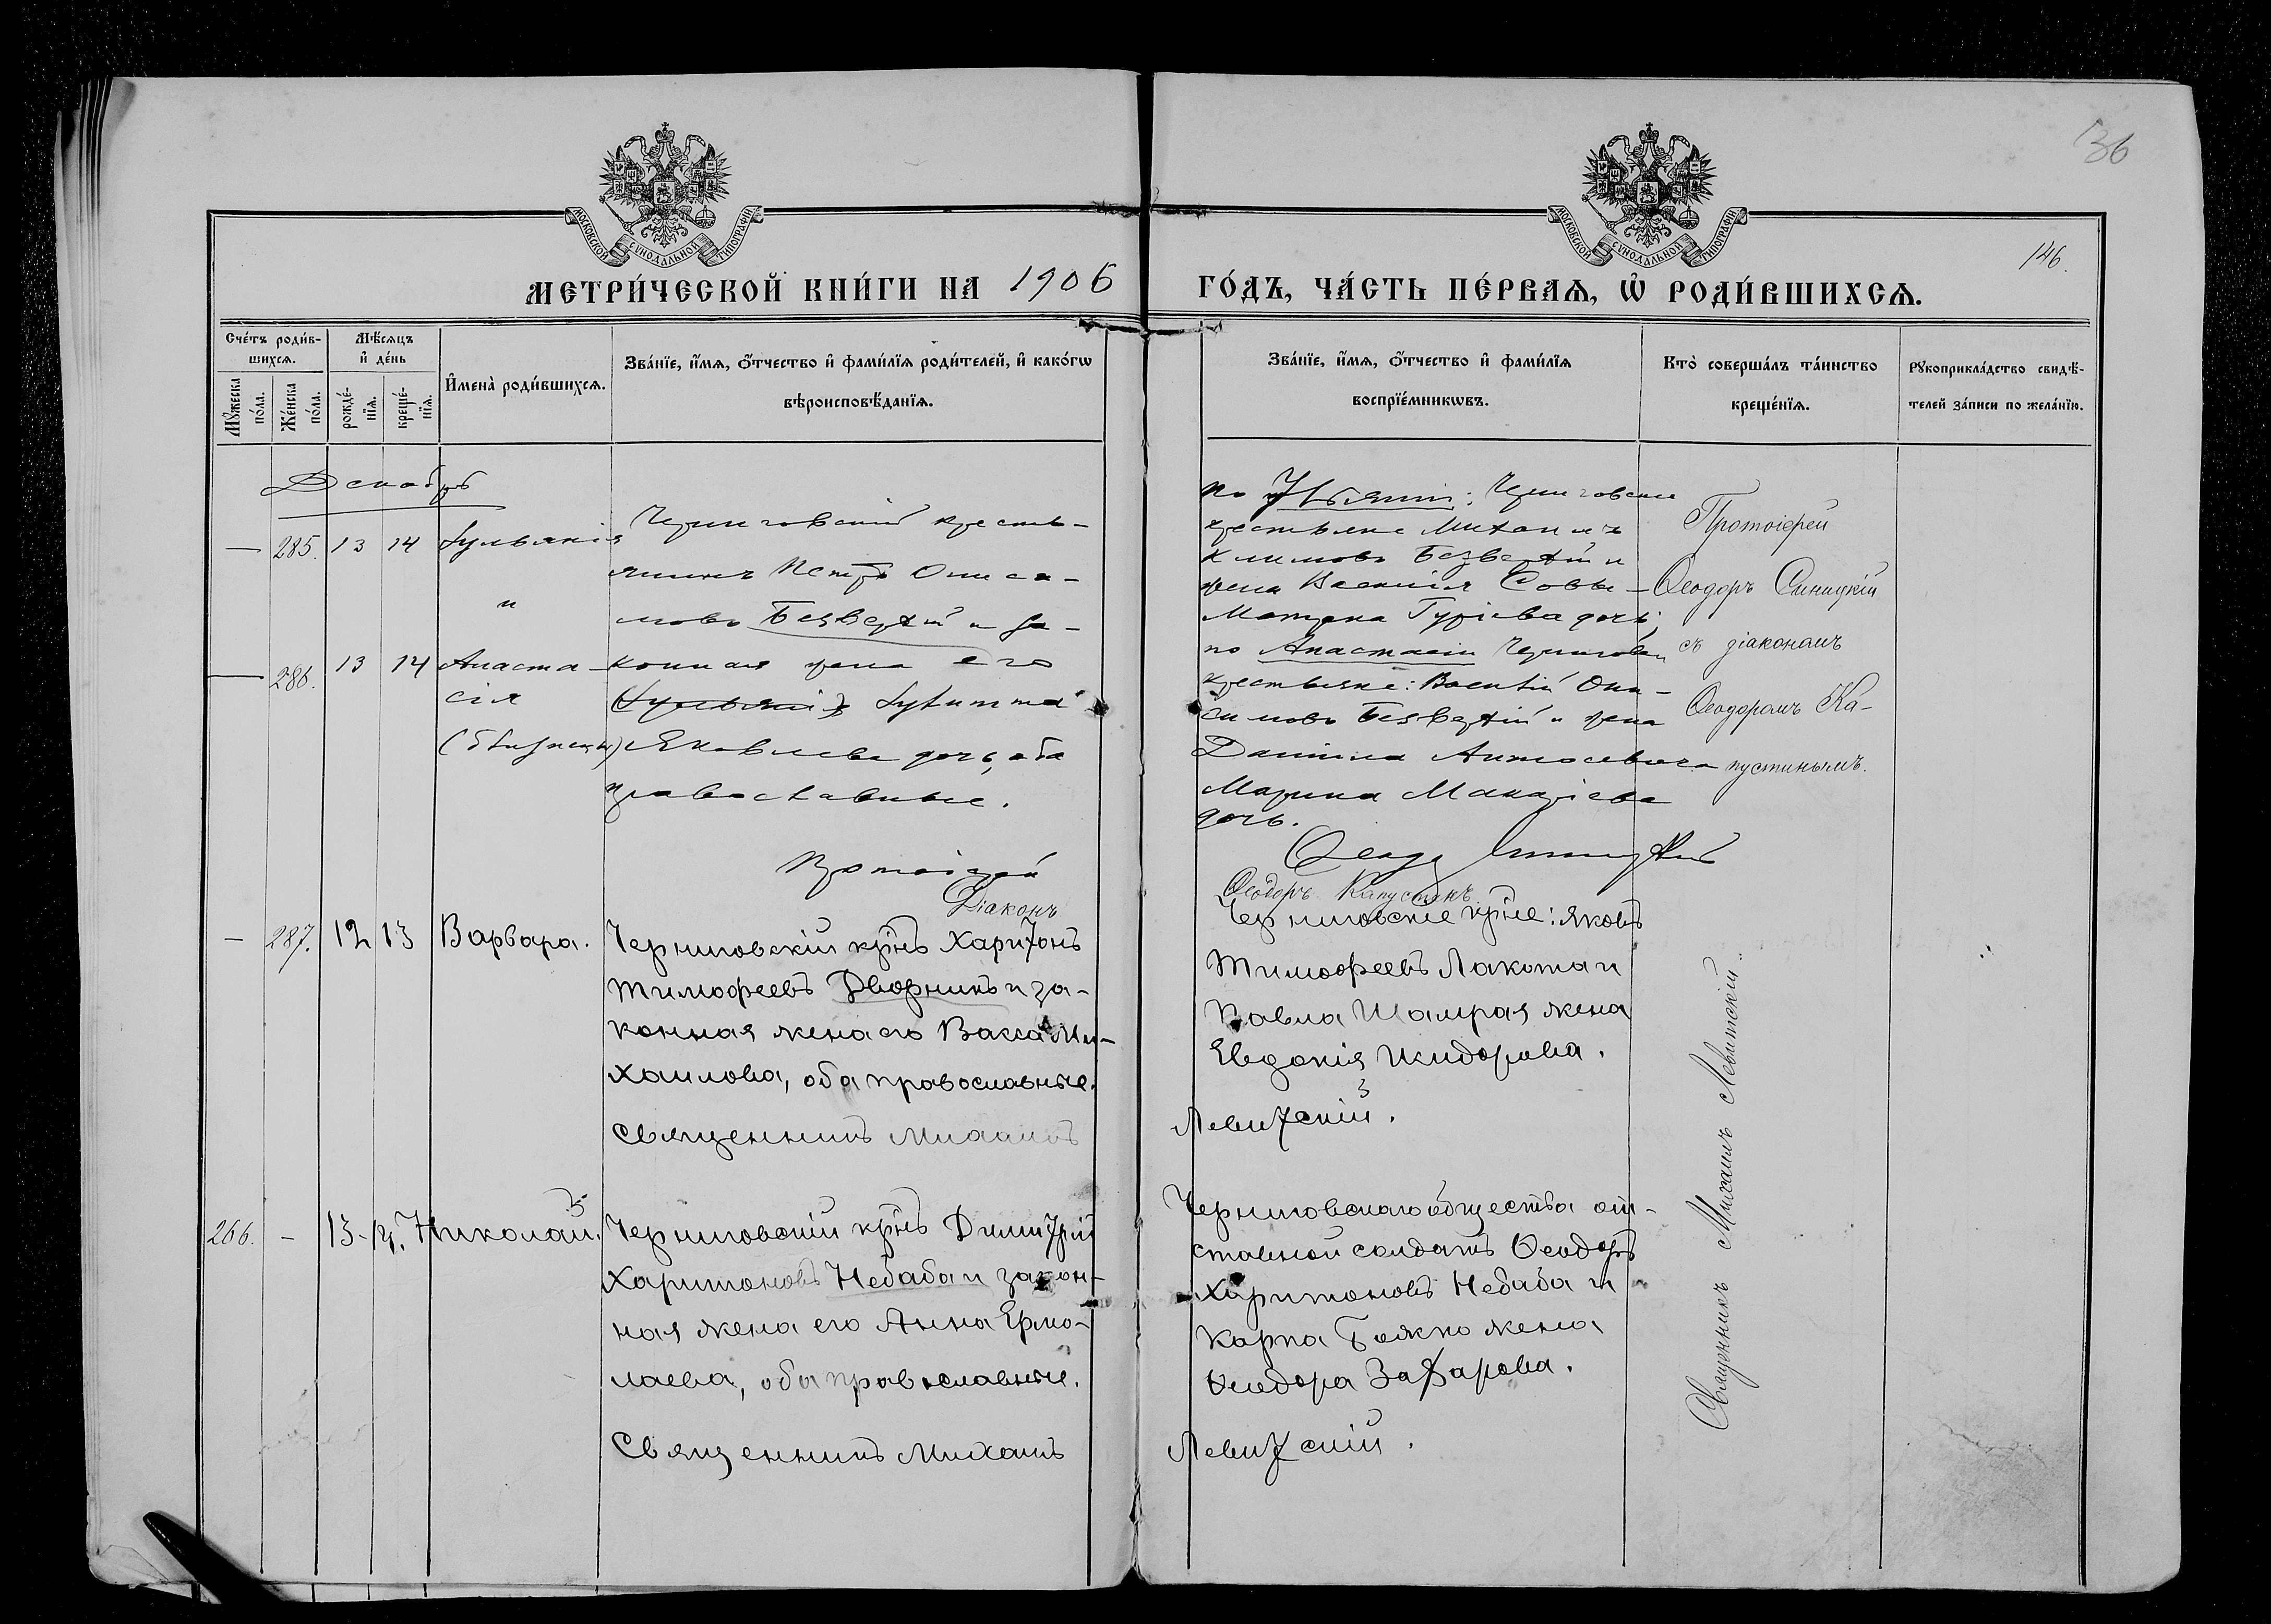 36
МОСКОВСКОЙ СѴНОДАЛЬНОЙ ТИПОГРАФІИ
МОСКОВСКОЙ СѴНОДАЛЬНОЙ ТИПОГРАФІИ
146.
МЕТРИ́ЧЕСКОЙ КНИ́ГИ НА 1906
ГО́ДЪ, ЧА́СТЬ ПЕ́РВАѦ, Ѡ҆ РОДИ́ВШИХСѦ.
Сче́тъ роди́в-
шихсѧ.
Мꙋ́жеска по́ла.
Же́нска по́ла.
Мѣ́сѧцъ
и҆ де́нь
рожде́-
нїѧ.
креще́-
нїѧ.
И҆мена̀ роди́вшихсѧ.
Зва́нїе, и҆́мѧ, ѻ҆́тчество и҆ фами́лїѧ роди́телей, и҆ како́гѡ
вѣроисповѣ́данїѧ.
Зва́нїе, и҆́мѧ, ѻ҆́тчество и҆ фами́лїѧ
воспрїе́мникѡвъ.
Кто̀ соверша́лъ та́инство
креще́нїѧ.
Рꙋкоприкла́дство свидѣ́-
телей за́писи по жела́нїю.
Декабрь
— 285. 13 14 Іульянія
и
— 286. 13 14 Анаста-
сія
(близнецы)
Черниговскій кресть-
янинъ Петръ Ониси-
мовъ Безверхій и за-
конная жена его
Яковлева дочь, оба
православные.
Протоіерей
Діаконъ
по Черниговские
крестьяне Михаилъ
Климовъ Безверхій и
жена Василія Соввы-
Матрона Гуріева дочь;
по Анастасіи Черниговск
крестьяне: Василій Они-
симовъ Безверхій и жена
Даніила
Марина Макаріева
дочь.
Ѳеодоръ Синицкій
Ѳеодоръ Капустинъ
Протоіерей
Ѳеодоръ Синицкій
съ діакономъ
Ѳеодоромъ Ка-
пустинымъ.
— 287. 12 13 Варвара.
Черниговскій крнъ Харитонъ
Тимофеевъ Дворникъ и за-
конная жена его Васса Ми-
хаилова, оба православные.
Священникъ Михаилъ
Черниговскіе крне: Яковъ
Тимофеевъ Лакота и
Павла Шамрая жена
Евдокія Исидорова.
Левитскій.
266. — 13-14. Николай.
Черниговскій крнъ Димитрій
Харитоновъ Небаба и закон-
ная жена его Анна Ермо-
лаева, оба православные.
Священникъ Михаилъ
Черниговскаго общества от-
ставной солдатъ Ѳеодоръ
Харитоновъ Небаба и
Карпа Божко жена
Ѳеодора Захарова.
Левитскій.
Священникъ Михаилъ Левитскій.